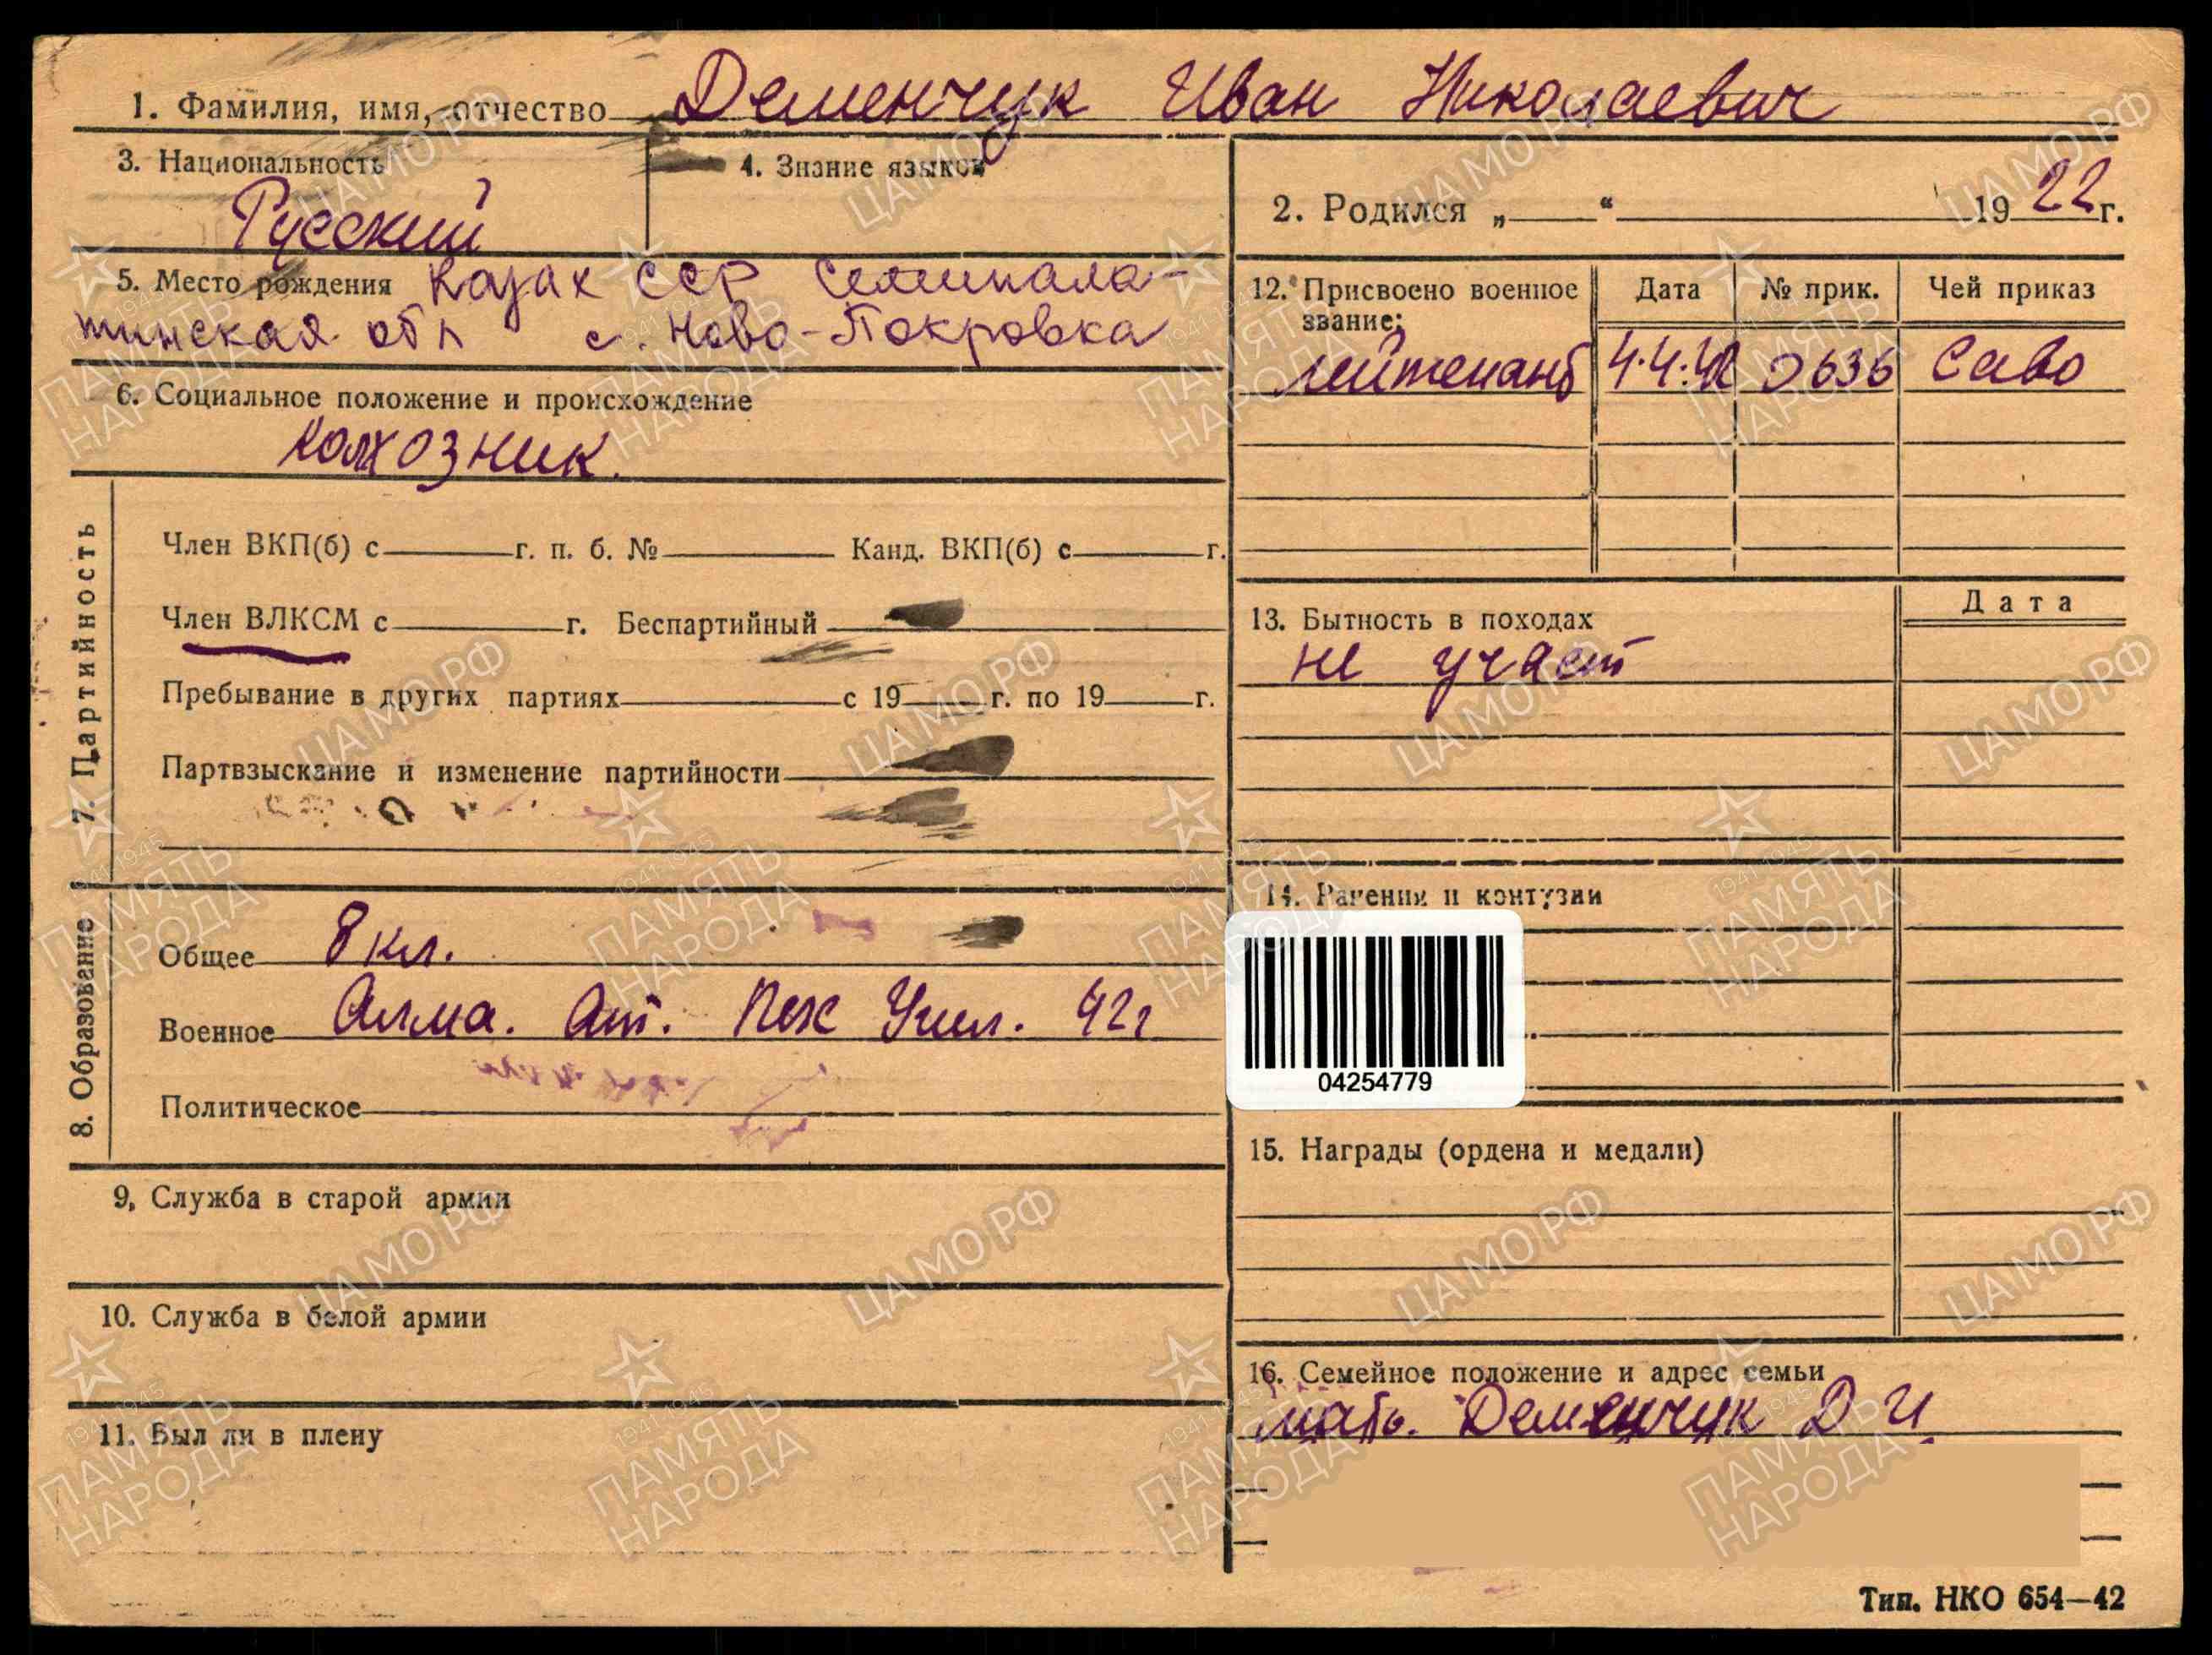 1. Фамилия, имя, отчество Деменчук Иван Николаевич
3. Национальность Русский
4. Знание языков
2. Родился „ “ 1922 г.
5. Место рождения Казах ССР Семипала-
тинская обл с. Ново-Покровка
6. Социальное положение и происхождение
колхозник.
12. Присвоено военное звание: Дата № прик. Чей приказ
лейтенант 4.4.42 0636 Саво
7. Партийность
Член ВКП(б) с г. п. б. № Канд. ВКП(б) с г.
Член ВЛКСМ с г. Беспартийный
Пребывание в других партиях с 19 г. по 19 г.
Партвзыскание и изменение партийности
13. Бытность в походах Дата
не участ
8. Образование
Общее 8 кл.
Военное Алма. Ат. Пех Учил. 42г
Политическое
14. Ранения и контузии
04254779
9, Служба в старой армии
10. Служба в белой армии
11. Был ли в плену
15. Награды (ордена и медали)
16. Семейное положение и адрес семьи
мать. Деменчук Д И
Тип. НКО 654—42
ЦАМО.РФ
1941-1945
ПАМЯТЬ
НАРОДА